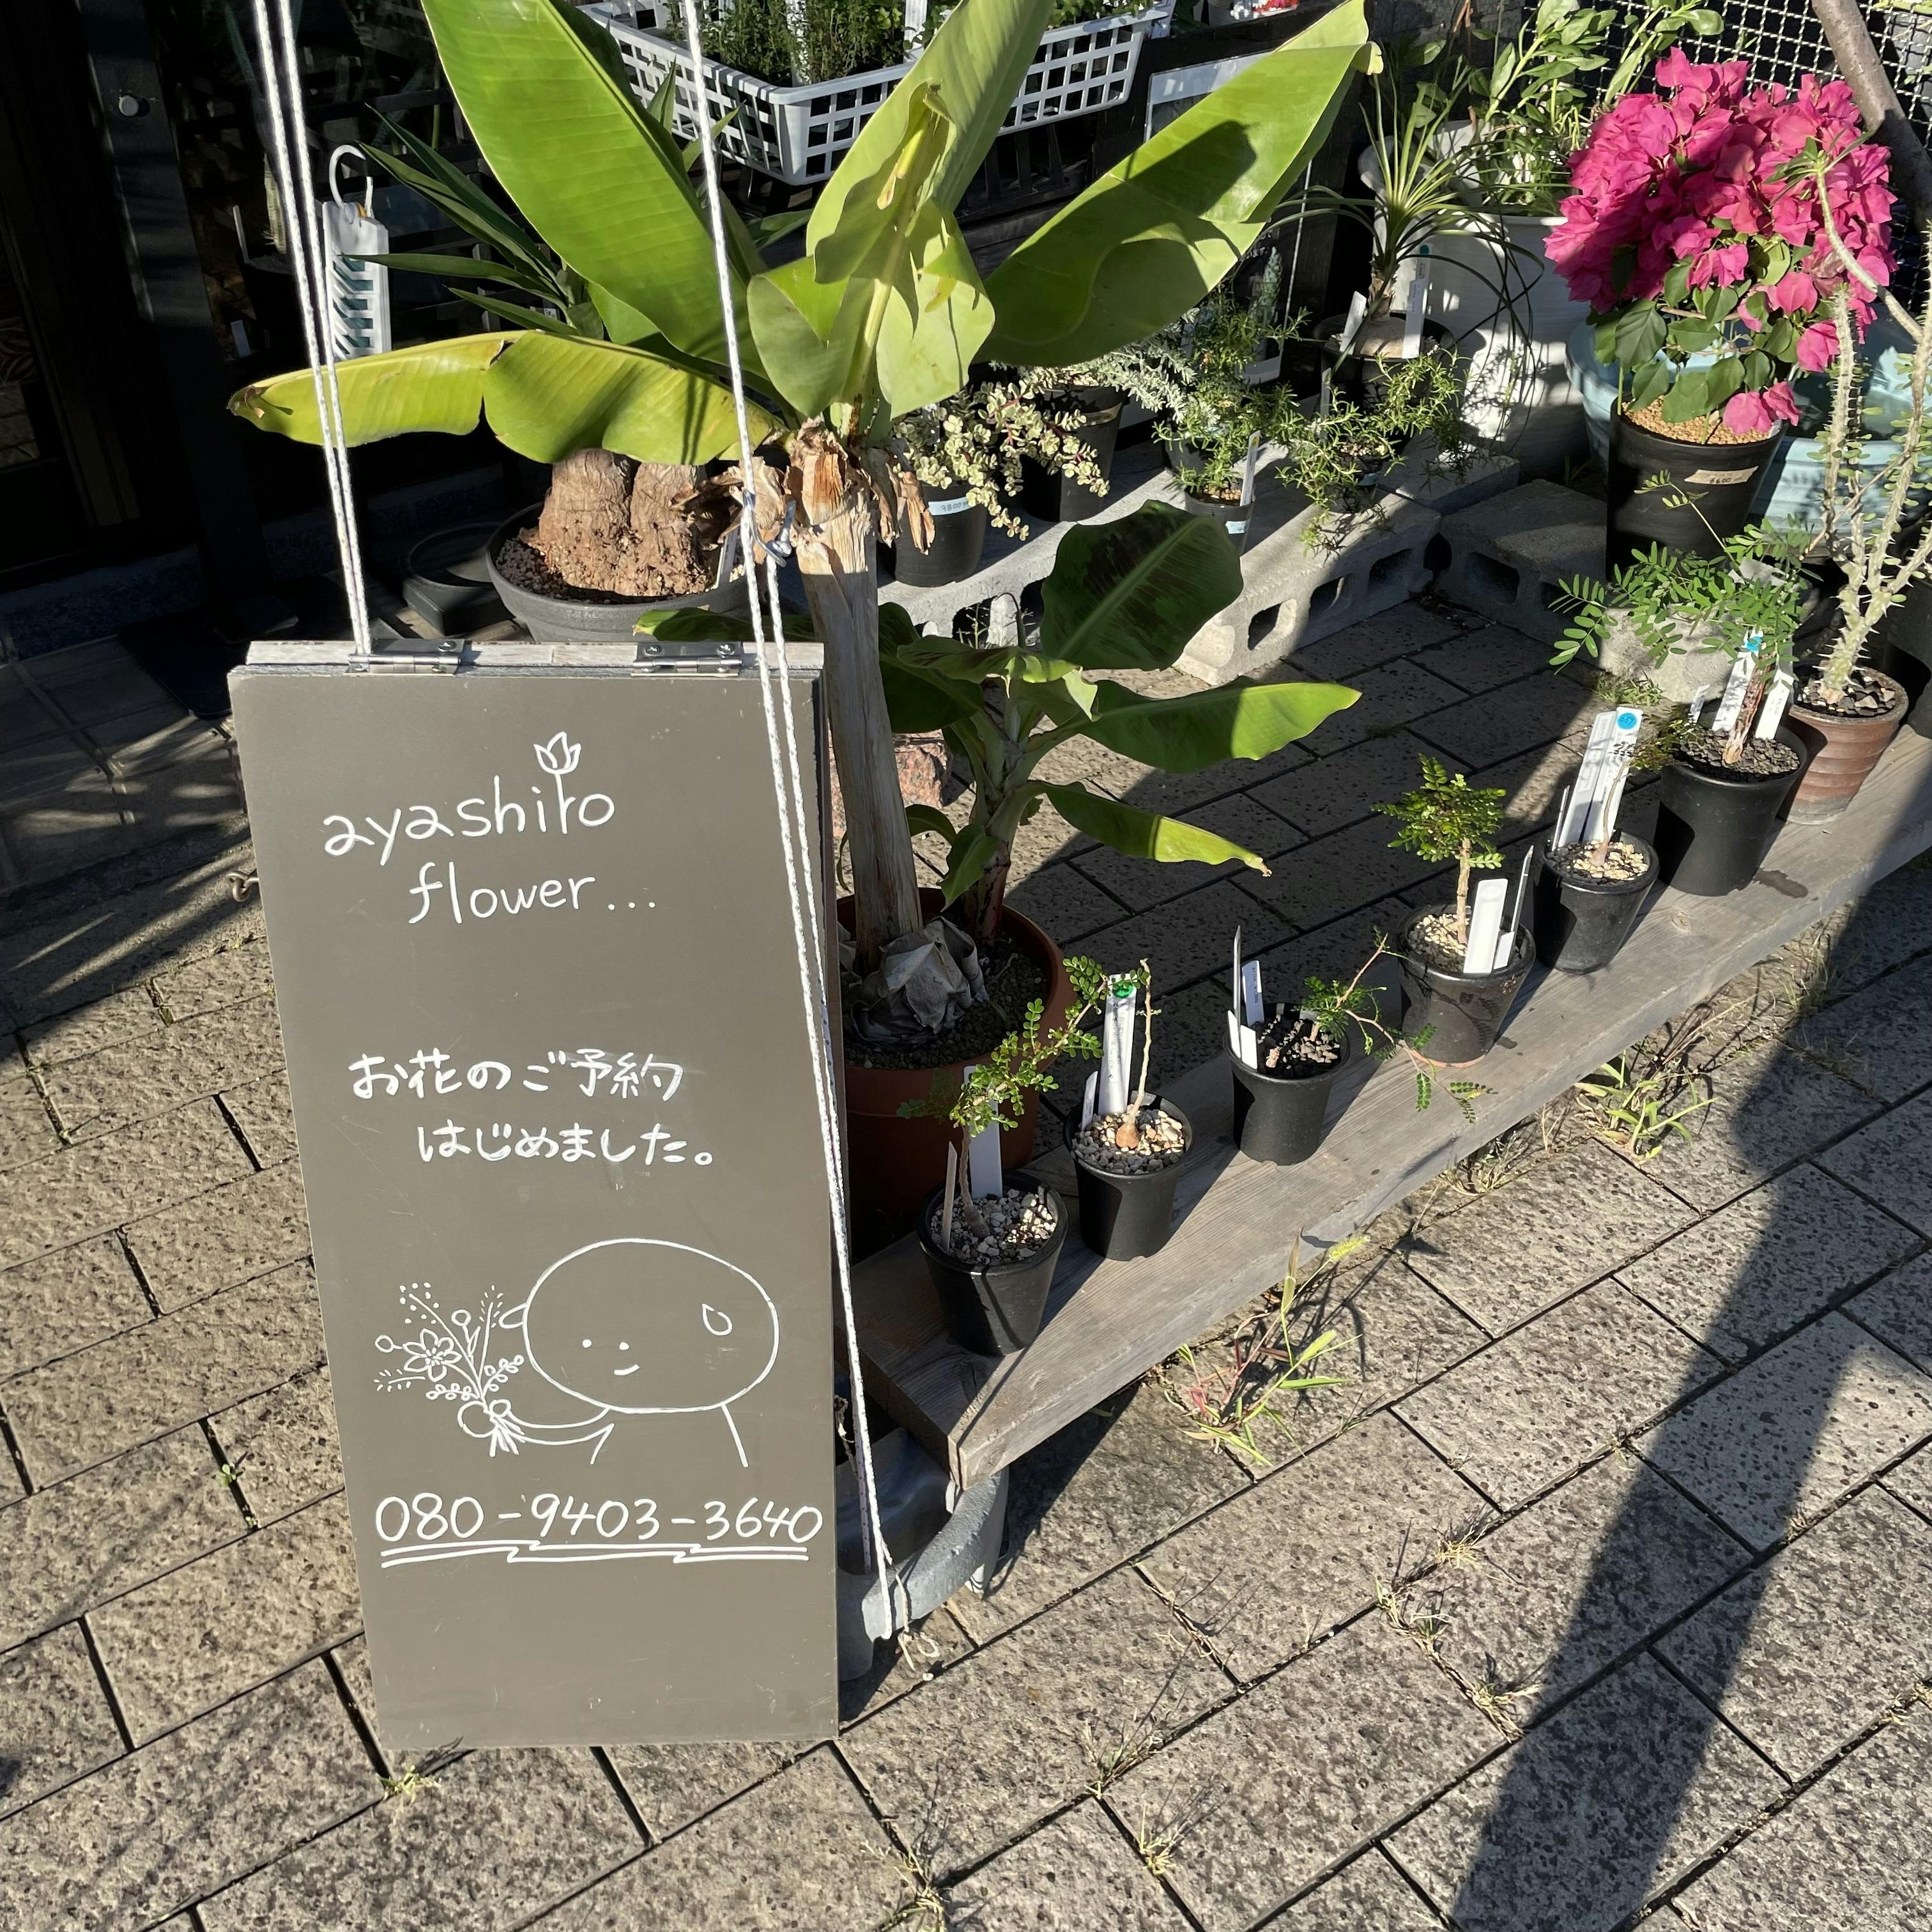 ayashiro
flower...
お花のご予約
はじめました。
080-9403-3640